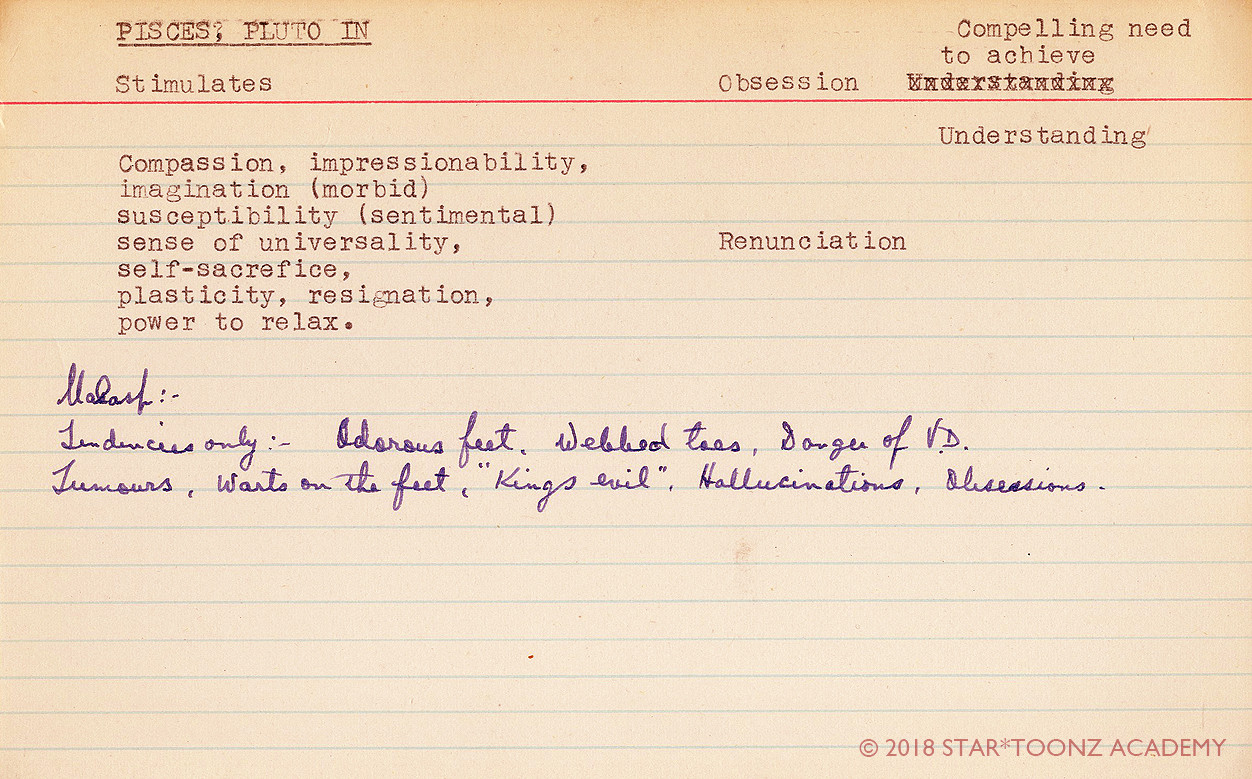 PISCES; PLUTO IN
Compelling need
to achieve
Stimulates Obsession Understanding
Understanding
Compassion, impressionability,
imagination (morbid)
susceptibility (sentimental)
sense of universality, Renunciation
self-sacrefice,
plasticity, resignation,
power to relax.
Malasp:-
Tendencies only:- Odorous feet, Webbed toes, Danger of V.D.
Tumours, Warts on the feet, "Kings evil", Hallucinations, Obsessions.
© 2018 STAR*TOONZ ACADEMY